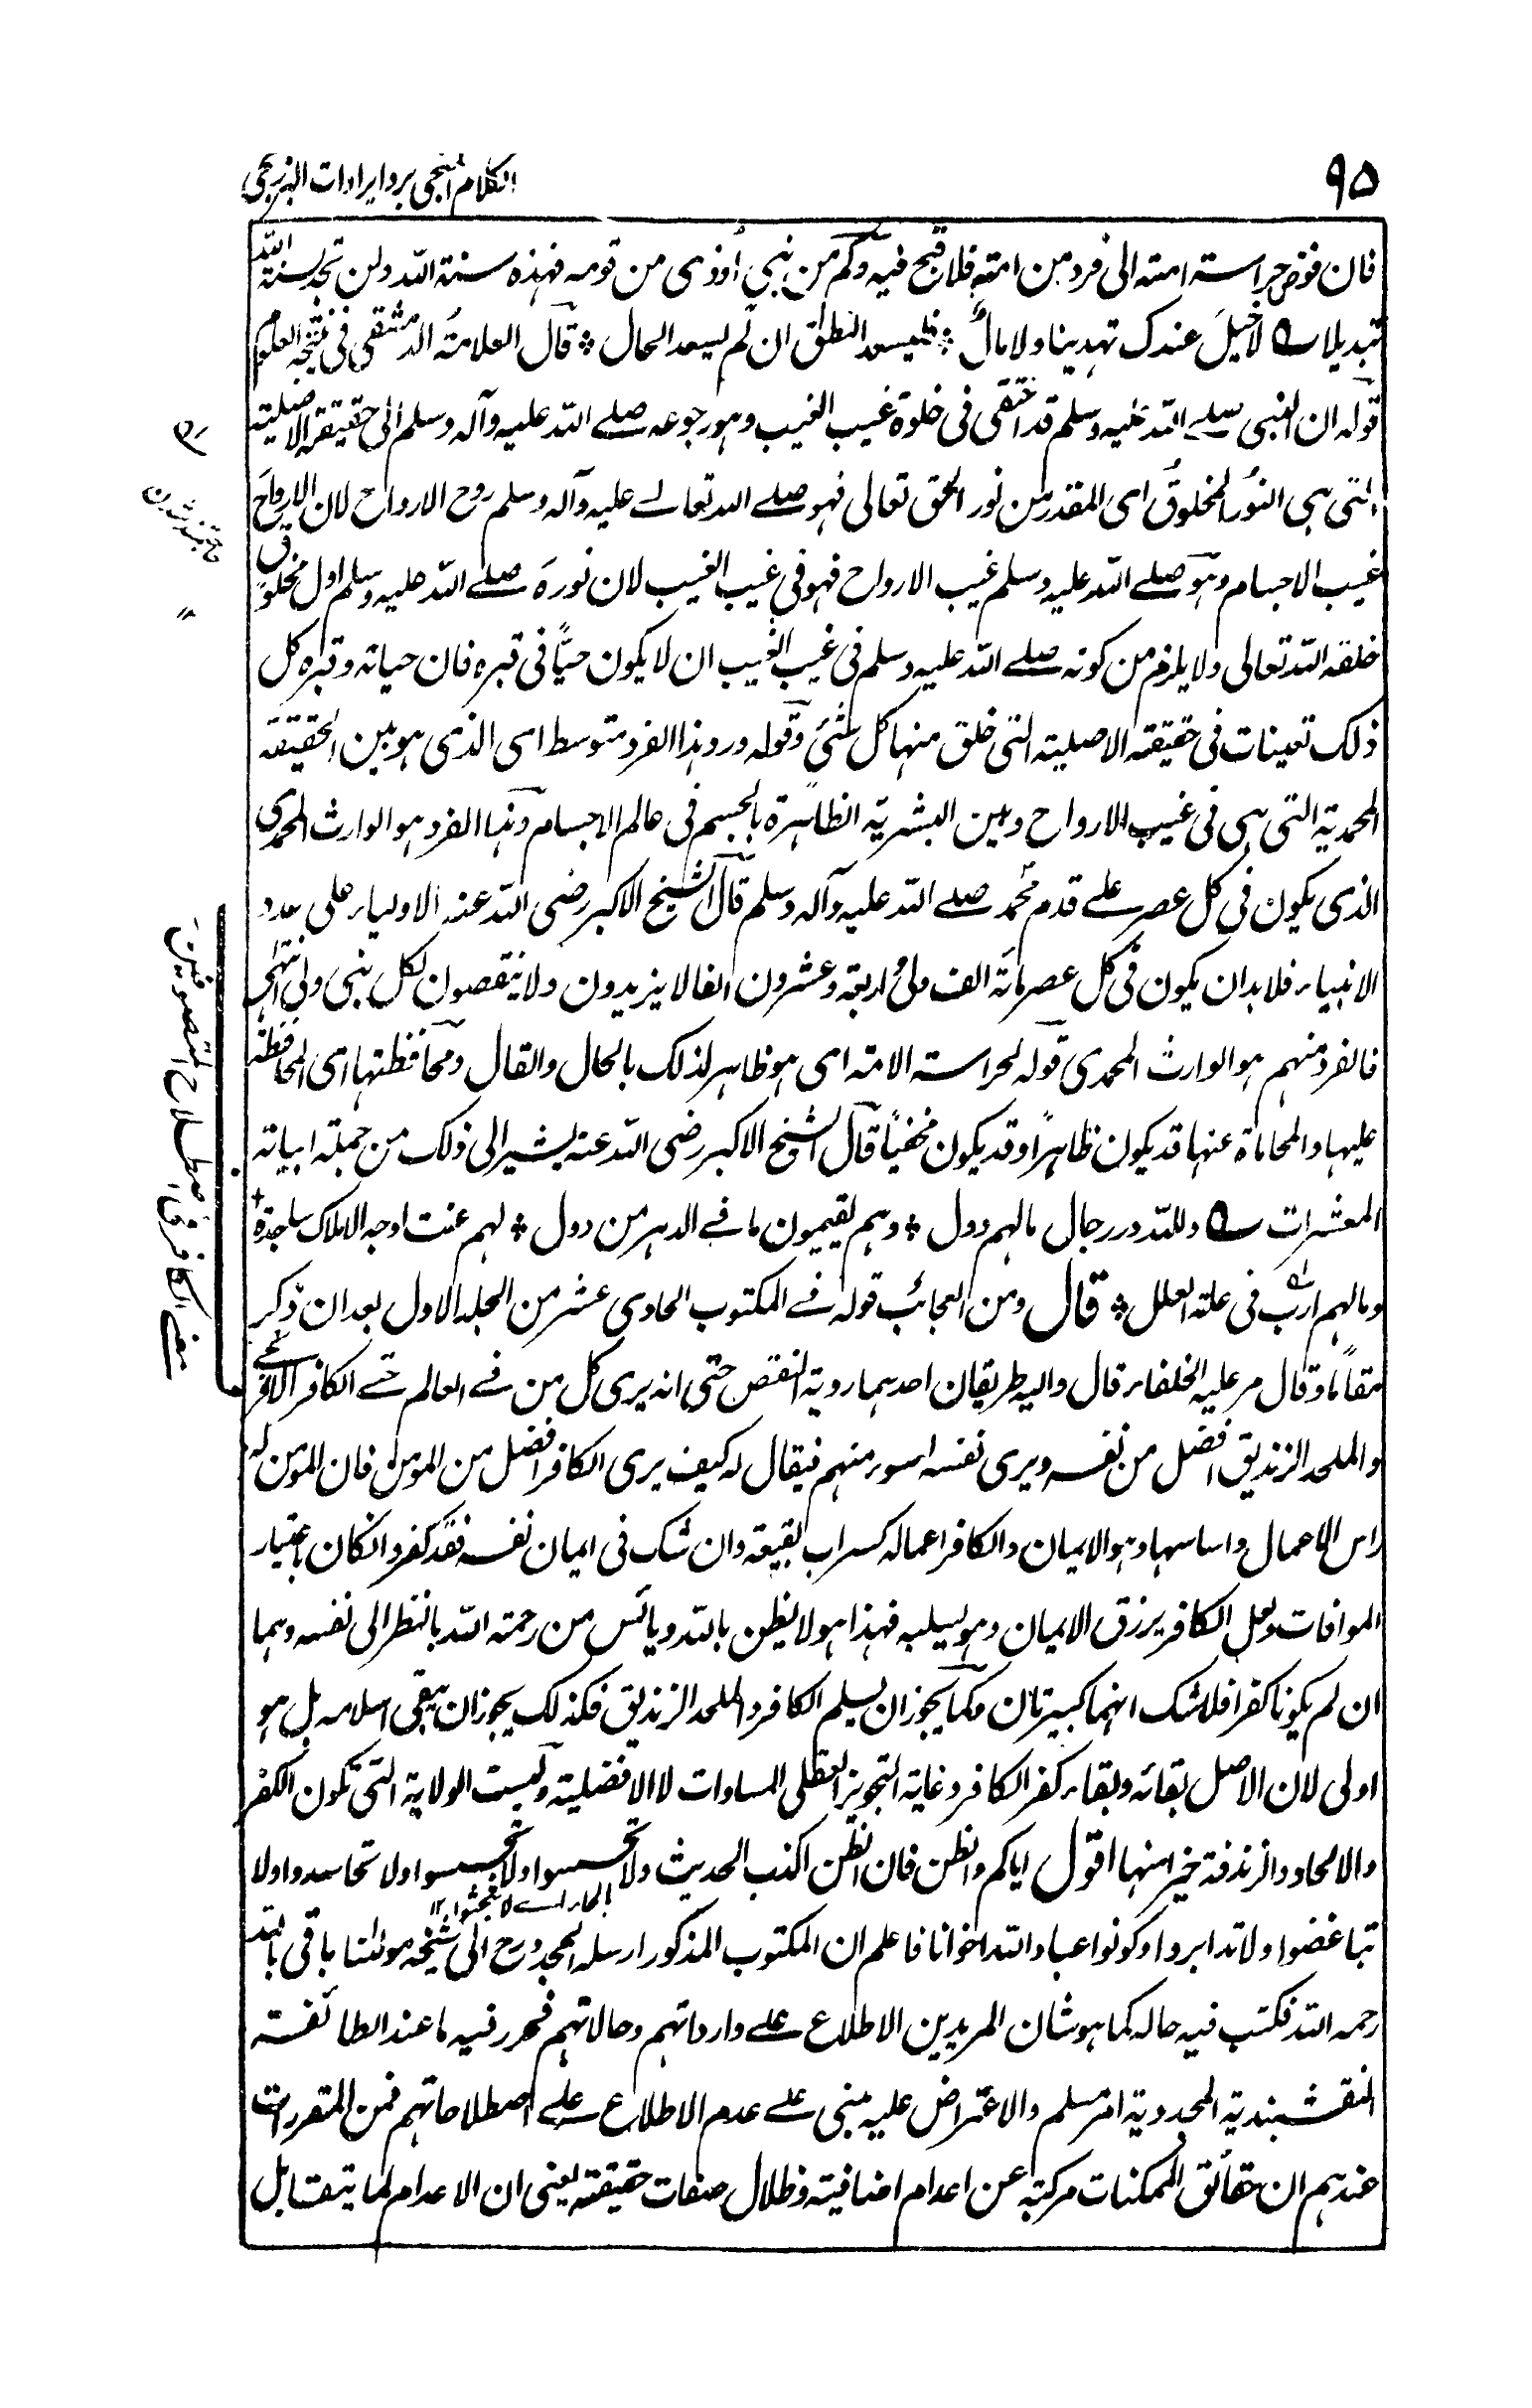 ٩٥
الكلام المنجى برد ايرادات البرزنجى
فان فوض حراسة امته الى فرد من امته فلا قبح فيه وكم من نبى أوذى من قومه فهذه سنة الله ولن تجد لسنة الله
تبديلا ؎ لا خيل عندك تهديها ولا مال ٭ فليسعد النطق ان لم يسعد الحال ٭ قال العلامة الدمشقى فى نتيجة العلوم
قوله ان النبى صلے الله عليه وسلم قد اختفى فى خلوة غيب الغيب وهو رجوعه صلے الله عليه وآله وسلم الى حقيقته الاصلية
التى هى النور المخلوق اى المقدر من نور الحق تعالى فهو صلے الله تعالے عليه وآله وسلم روح الارواح لان الارواح
غيب الاجسام وهو صلے الله عليه وسلم غيب الارواح فهو فى غيب الغيب لان نوره صلے الله عليه وسلم اول مخلوق
خلقه الله تعالى ولا يلزم من كونه صلے الله عليه وسلم فى غيب الغيب ان لا يكون حيًّا فى قبره فان حياته وقبره كل
ذلك تعينات فى حقيقته الاصلية التى خلق منها كل شئ وقوله ورد هذا الفرد متوسط اى الذى هو بين الحقيقة
المحمدية التى هى فى غيب الارواح وبين البشرية الظاهرة بالجسم فى عالم الاجسام وهذا الفرد هو الوارث المحمدى
الذى يكون فى كل عصر علے قدم محمد صلے الله عليه وآله وسلم قال الشيخ الاكبر رضى الله عنه الاولياء على عدد
الانبياء فلابد ان يكون فى كل عصر مائة الف ولى اربعة وعشرون الفا لا يزيدون ولا ينقصون لكل نبى ولى انتهى
فالفرد منهم هو الوارث المحمدى قوله لحراسة الامة اى هو ظاهر لذلك بالحال والقال ومحافظتها اى المحافظة
عليها والمحاماة عنها قد يكون ظاهرًا وقد يكون مخفيًا قال الشيخ الاكبر رضى الله عنه يشير الى ذلك من جملة ابياته
المعشرات ؎ ولله در رجال مالهم دول ٭ وهم يقيمون ما فے الدهر من دول ٭ لهم عنت اوجه الاملاك ساجدة ٭
ومالهم ارب فى علة العلل ٭ قال ومن العجائب قوله فے المكتوب الحادى عشر من الجلد الاول بعد ان ذكر
مقامًا وقال مر عليه الخلفاء قال واليه طريقان احدهما روية النقص حتى انه يرى كل من فے العالم حتے الكافر الافرنجے
والملحد الزنديق افضل من نفسه ويرى نفسه اسوء منهم فيقال له كيف يرى الكافر افضل من المومن فان المومن له
راس الاعمال واساسها وهو الايمان والكافر اعماله كسراب بقيعة وان شك فى ايمان نفسه فقد كفر وان كان باعتبار
الموافات ولعل الكافر يرزق الايمان وهو يسلبه فهذا هو لا يظن بالله ويائس من رحمة الله بالنظر الى نفسه وهما
ان لم يكونا كفرا فلا شك انهما كبيرتان وكما يجوز ان يسلم الكافر والملحد الزنديق فكذلك يجوز ان يبقى اسلامه بل هو
اولى لان الاصل بقائه وبقاء كفر الكافر وغاية التجويز العقلى المساوات لا الافضلية وليست الولاية التى تكون الكفر
والالحاد والزندقة خيرا منها اقول اياكم والظن فان الظن اكذب الحديث ولا تحسسوا ولا تجسسوا ولا تحاسدوا ولا
تباغضوا ولا تدابروا وكونوا عباد الله اخوانا فاعلم ان المكتوب المذكور ارسله المجدد رح الى شيخه مولٰنا باقى بالله
رحمه الله فكتب فيه حاله كما هو شان المريدين الاطلاع علے وارداتهم وحالاتهم فحرر فيه ما عند الطائفة
النقشبندية المجددية امر مسلم والاعتراض عليه مبنى علے عدم الاطلاع علے اصطلاحاتهم فمن المقررات
عندهم ان حقائق الممكنات مركبة عن اعدام اضافية وظلال صفات حقيقة يعنى ان الاعدام لما يتقابل
معنے الكافر فى اصطلاح المتصوفين